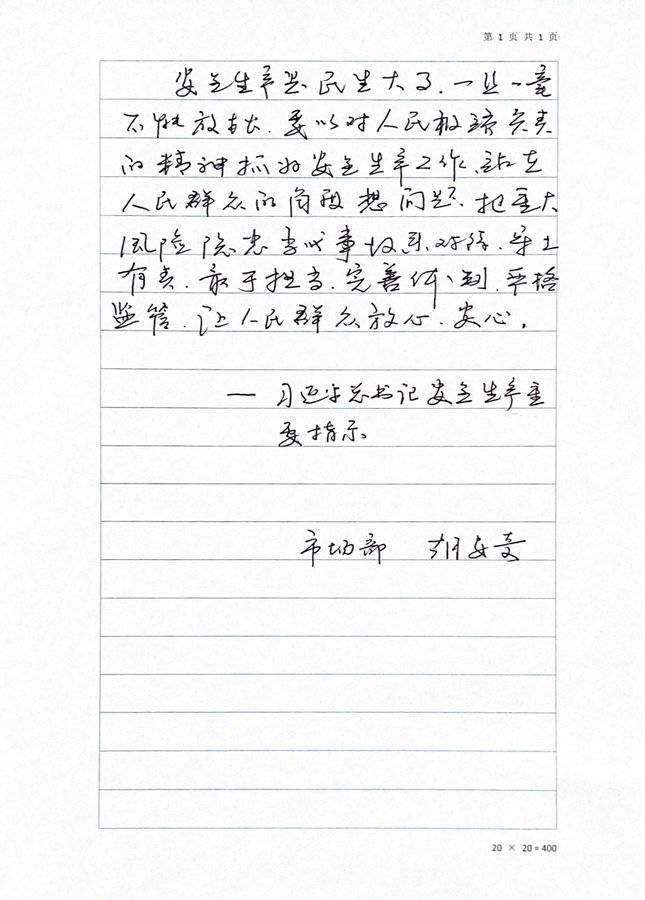 第 1 页 共 1 页
安全生产是民生大事，一丝一毫
不能放松，要以对人民极端负责
的精神抓好安全生产工作，站在
人民群众的角度想问题，把重大
风险隐患当成事故来对待，守土
有责，敢于担当，完善体制，严格
监管，让人民群众放心、安心。
— 习近平总书记安全生产重
要指示
市场部 胡安
20 × 20 = 400